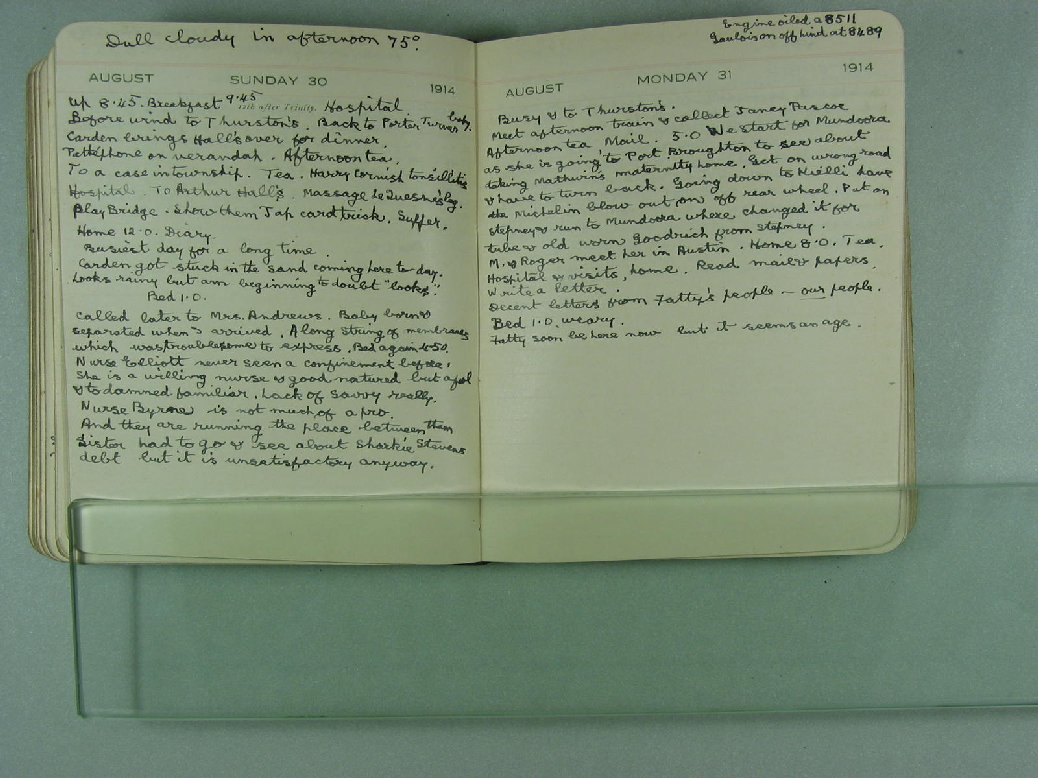 Dull cloudy in afternoon 75°.
AUGUST SUNDAY 30 1914
12th after Trinity.
Up 8.45. Breakfast 9.45 Hospital.
Before wind to Thurston's. Back to Porter Turner baby.
Carden brings Hall's over for dinner.
Pathephone on verandah. Afternoon tea.
To a case in township. Tea. Harry Cornish tonsillitis
Hospital. To Arthur Hall's. Massage Le Quesne's leg.
Play Bridge. Show them Jap card trick. Supper.
Home 12.0. Diary.
Busiest day for a long time.
Carden got stuck in the sand coming here to day.
Looks rainy but am beginning to doubt "looks".
Bed 1.0.
Called later to Mrs. Andrews. Baby born &
separated when I arrived. A long string of membranes
which was troublesome to express. Bed again 4.50.
Nurse Elliott never seen a confinement before.
She is a willing nurse & good natured but a fool
& to damned familiar. Lack of savvy really.
Nurse Byrne is not much of a pro.
And they are running the place between them
Sister had to go & see about Sharkie Stevens
debt but it is unsatisfactory anyway.
Engine oiled a 8511
Gaulois on off hind at 8489
AUGUST MONDAY 31 1914
Busy & to Thurston's.
Meet afternoon train & collect Janey Pascoe
Afternoon tea, Mail. 5.0 We start for Mundoora
as she is going to Port Broughton to see about
taking Mathwin's maternity home. Get on wrong road
& have to turn back. Going down to Mielli have
the Michelin blow out on off rear wheel. Put on
stepney & run to Mundoora where changed it for
tube & old worn Goodrich from stepney.
M. & Roger meet her in Austin. Home 8.0. Tea.
Hospital & visits, home. Read mail & papers.
Write a letter.
Decent letters from Fatty's people — our people.
Bed 1.0. weary.
Fatty soon be here now but it seems an age.